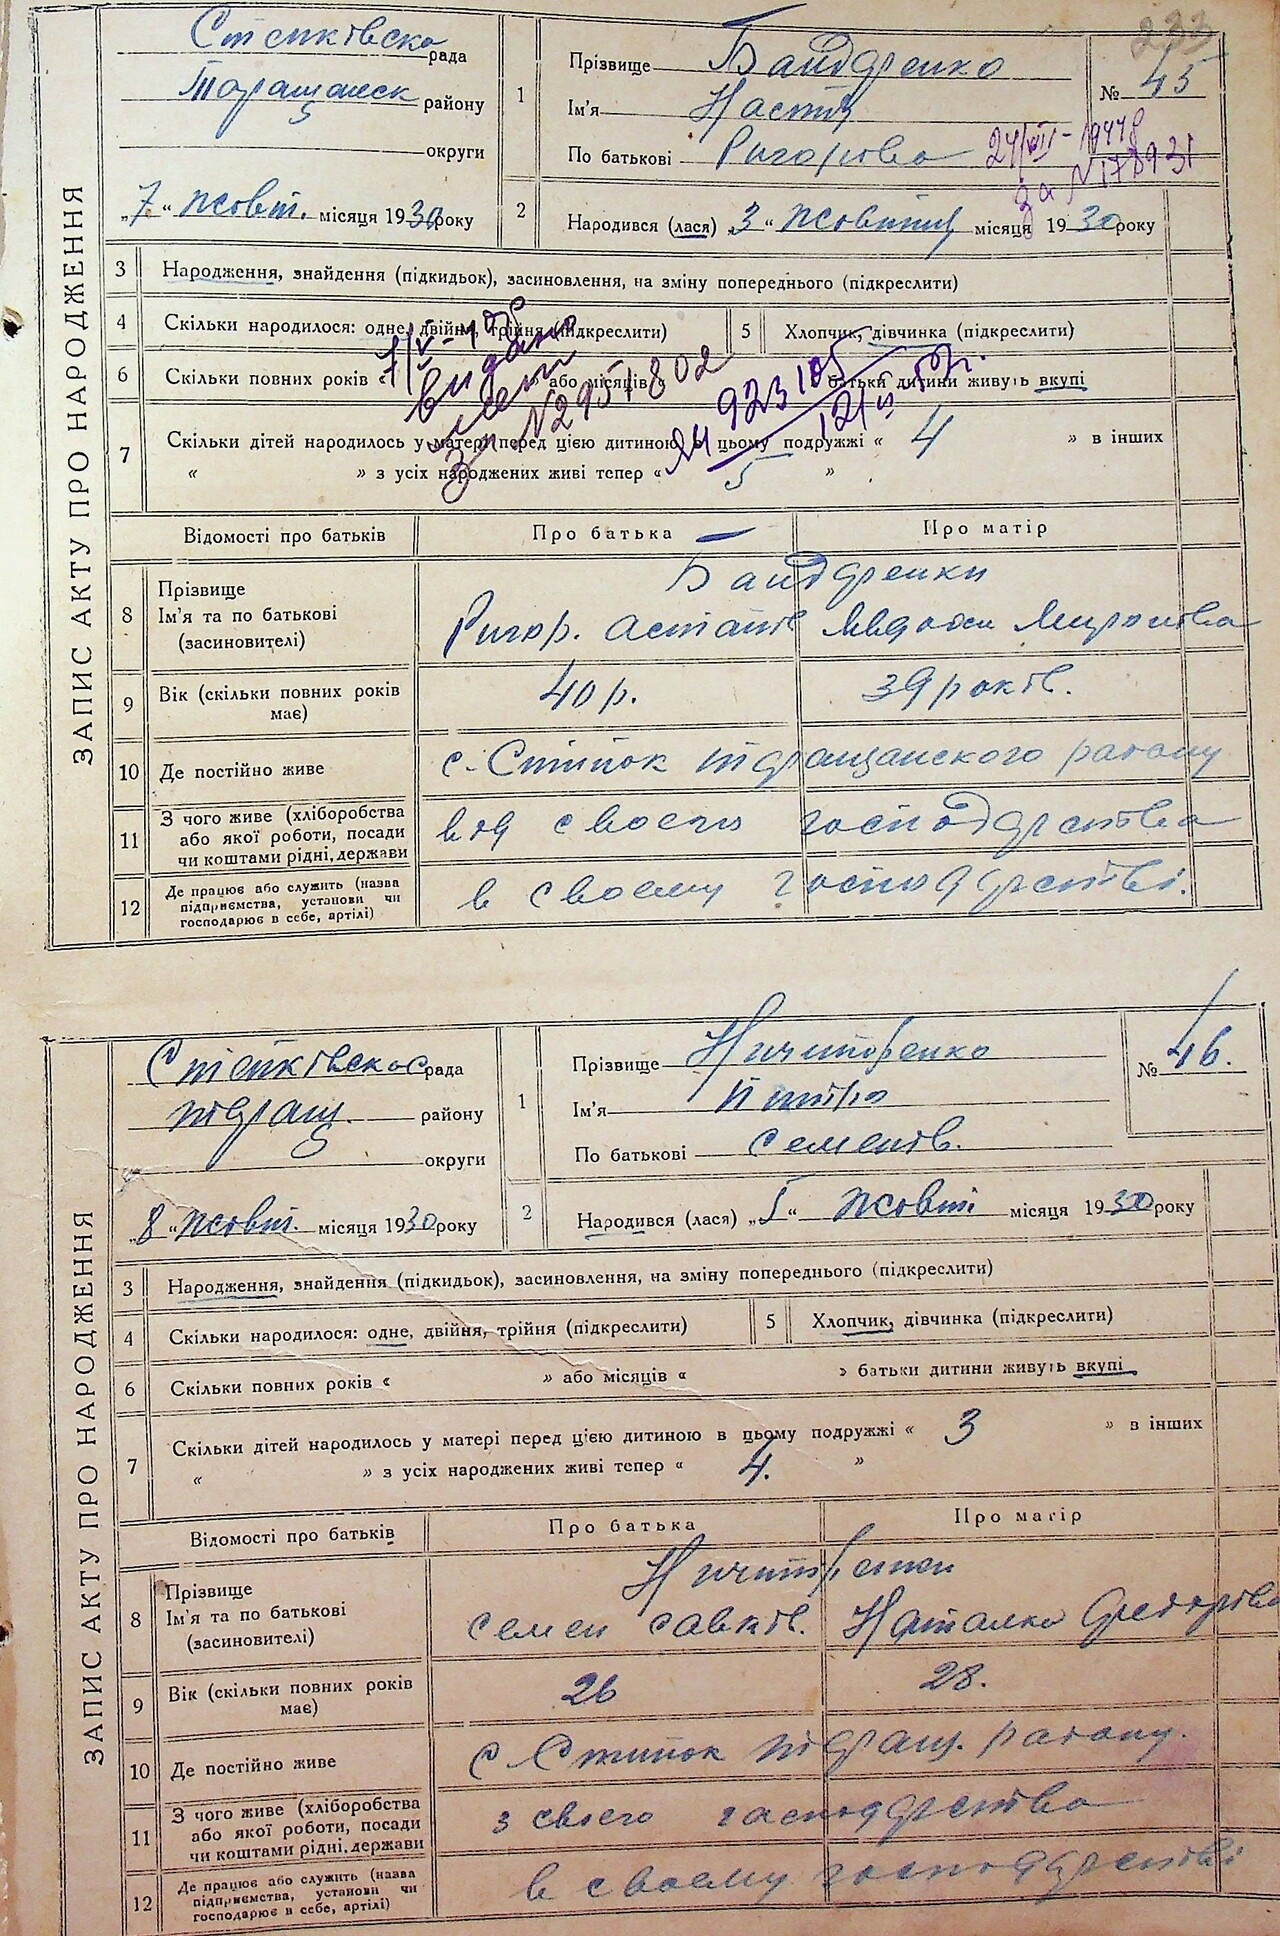 233
ЗАПИС АКТУ ПРО НАРОДЖЕННЯ
Стенківська рада
Таращанськ району
округи
„7“ жовт. місяця 1930 року
1 Прізвище Байдренко
Ім'я Настя
По батькові Ригорова
№ 45
24/VII-1944 р.
за № 178931
2 Народився (лася) „3“ жовтня місяця 1930 року
3 Народження, знайдення (підкидьок), засиновлення, на зміну попереднього (підкреслити)
4 Скільки народилося: одне, двійня, трійня (підкреслити) 5 Хлопчик, дівчинка (підкреслити)
6 Скільки повних років « » або місяців « » батьки дитини живуть вкупі
видано
за № 2951802
923105
7 Скільки дітей народилось у матері перед цією дитиною в цьому подружжі « 4 » в інших
« » з усіх народжених живі тепер « 5 »
Відомості про батьків Про батька Про матір
8 Прізвище Ім'я та по батькові (засиновителі) Байдренки
Ригор. Мироновна
9 Вік (скільки повних років має) 40 р. 39 років.
10 Де постійно живе с. Стинок таращанского району
11 З чого живе (хліборобства або якої роботи, посади чи коштами рідні, держави від своего господарства
12 Де працює або служить (назва підприємства, установи чи господарює в себе, артілі) в своему господарстві.
ЗАПИС АКТУ ПРО НАРОДЖЕННЯ
Стенківська рада
таращ. району
округи
„8“ жовт. місяця 1930 року
1 Прізвище Ничипоренко
Ім'я Питро
По батькові Семенів.
№ 46.
2 Народився (лася) „5“ жовтн місяця 1930 року
3 Народження, знайдення (підкидьок), засиновлення, на зміну попереднього (підкреслити)
4 Скільки народилося: одне, двійня, трійня (підкреслити) 5 Хлопчик, дівчинка (підкреслити)
6 Скільки повних років « » або місяців « » батьки дитини живуть вкупі
7 Скільки дітей народилось у матері перед цією дитиною в цьому подружжі « 3 » в інших
« » з усіх народжених живі тепер « 4. »
Відомості про батьків Про батька Про матір
8 Прізвище Ім'я та по батькові (засиновителі) Ничипоренки
Семен Савков. Наталка Федорівна
9 Вік (скільки повних років має) 26 28.
10 Де постійно живе с Стинок таращ. району.
11 З чого живе (хліборобства або якої роботи, посади чи коштами рідні, держави з свого господарства
12 Де працює або служить (назва підприємства, установи чи господарює в себе, артілі) в своему господарстві